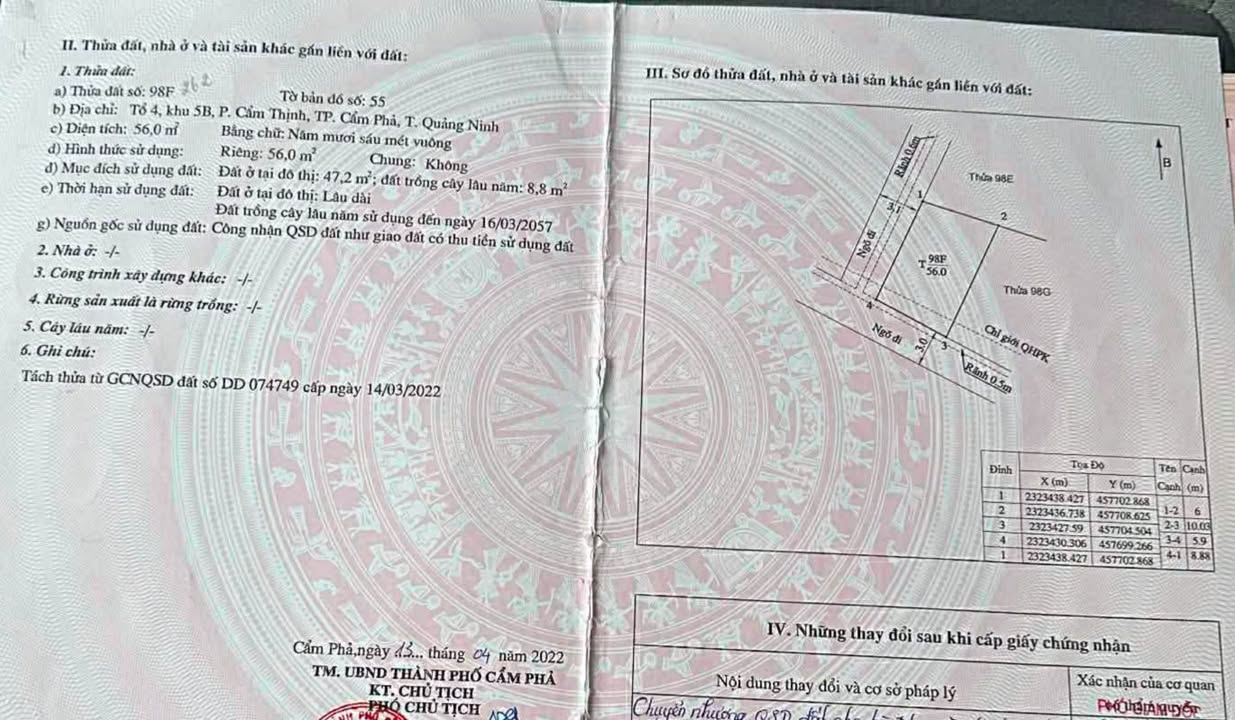 II. Thửa đất, nhà ở và tài sản khác gắn liền với đất:
1. Thửa đất:
a) Thửa đất số: 98F 262
Tờ bản đồ số: 55
b) Địa chỉ: Tổ 4, khu 5B, P. Cẩm Thịnh, TP. Cẩm Phả, T. Quảng Ninh
c) Diện tích: 56,0 m² Bằng chữ: Năm mươi sáu mét vuông
d) Hình thức sử dụng: Riêng: 56,0 m² Chung: Không
đ) Mục đích sử dụng đất: Đất ở tại đô thị: 47,2 m²; đất trồng cây lâu năm: 8,8 m²
e) Thời hạn sử dụng đất: Đất ở tại đô thị: Lâu dài
Đất trồng cây lâu năm sử dụng đến ngày 16/03/2057
g) Nguồn gốc sử dụng đất: Công nhận QSD đất như giao đất có thu tiền sử dụng đất
2. Nhà ở: -/-
3. Công trình xây dựng khác: -/-
4. Rừng sản xuất là rừng trồng: -/-
5. Cây lâu năm: -/-
6. Ghi chú:
Tách thửa từ GCNQSD đất số DD 074749 cấp ngày 14/03/2022
Cẩm Phả, ngày 13... tháng 04 năm 2022
TM. UBND THÀNH PHỐ CẨM PHẢ
KT. CHỦ TỊCH
PHÓ CHỦ TỊCH
III. Sơ đồ thửa đất, nhà ở và tài sản khác gắn liền với đất:
B
Rãnh 0.6m
Thửa 98E
1
3,1
2
Ngõ đi
T 98F
56.0
Thửa 98G
4
Ngõ đi
3.0
3
Chỉ giới QHPK
Rãnh 0.5m
Đỉnh Tọa Độ Tên Cạnh Cạnh (m)
X (m) Y (m)
1 2323438.427 457702.868
1-2 6
2 2323436.738 457708.625
2-3 10.03
3 2323427.59 457704.504
3-4 5.9
4 2323430.306 457699.266
4-1 8.88
1 2323438.427 457702.868
IV. Những thay đổi sau khi cấp giấy chứng nhận
Nội dung thay đổi và cơ sở pháp lý
Xác nhận của cơ quan
Chuyển nhượng QSD đất cho
PHÓ GIÁM ĐỐC